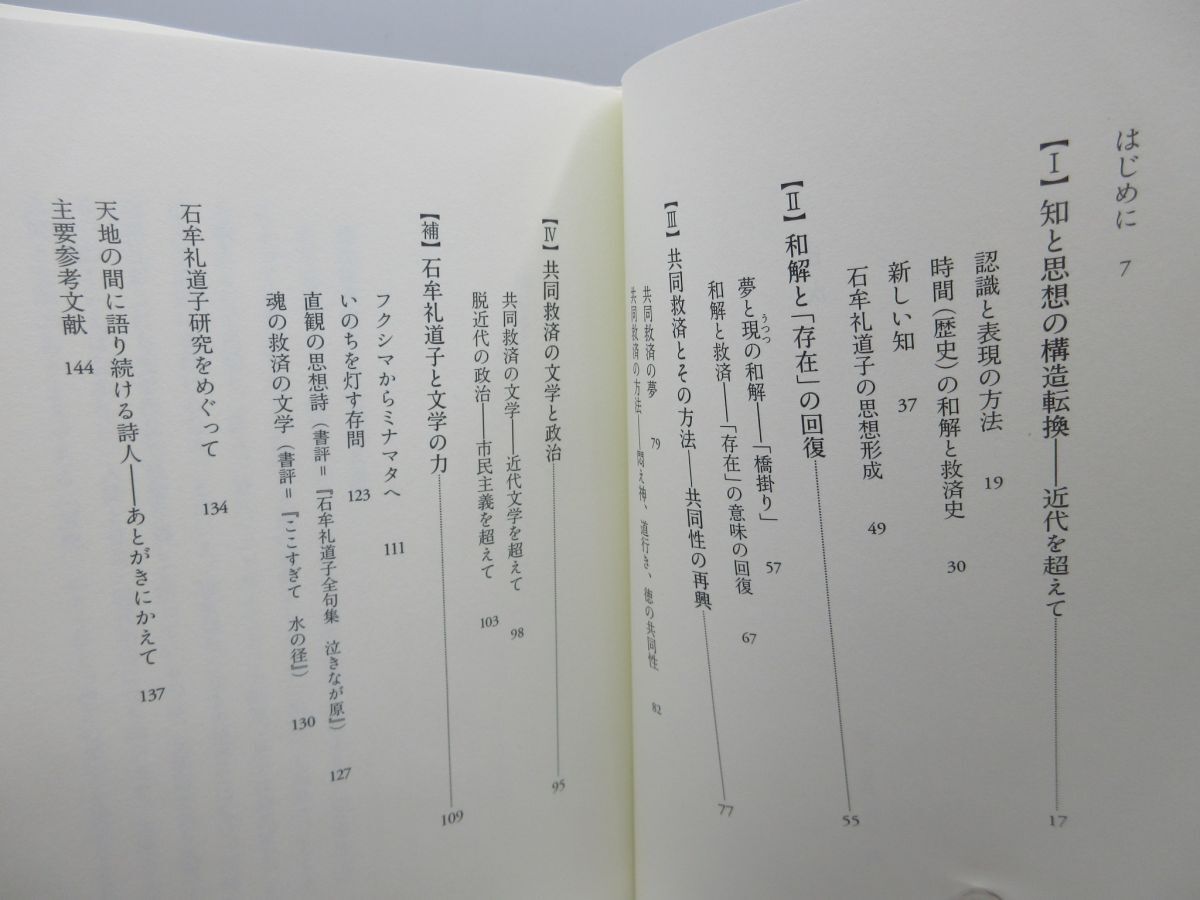 はじめに 7
【Ⅰ】知と思想の構造転換――近代を超えて……17
認識と表現の方法 19
時間（歴史）の和解と救済史 30
新しい知 37
石牟礼道子の思想形成 49
【Ⅱ】和解と「存在」の回復……55
夢と現の和解――「橋掛り」 57
うつつ
和解と救済――「存在」の意味の回復 67
【Ⅲ】共同救済とその方法――共同性の再興……77
共同救済の夢 79
共同救済の方法――悶え神、道行き、徳の共同性 82
【Ⅳ】共同救済の文学と政治……95
共同救済の文学――近代文学を超えて 98
脱近代の政治――市民主義を超えて 103
【補】石牟礼道子と文学の力……109
フクシマからミナマタへ 111
いのちを灯す存問 123
直観の思想詩（書評＝『石牟礼道子全句集 泣きなが原』） 127
魂の救済の文学（書評＝『ここすぎて 水の径』） 130
石牟礼道子研究をめぐって 134
天地の間に語り続ける詩人――あとがきにかえて 137
主要参考文献 144